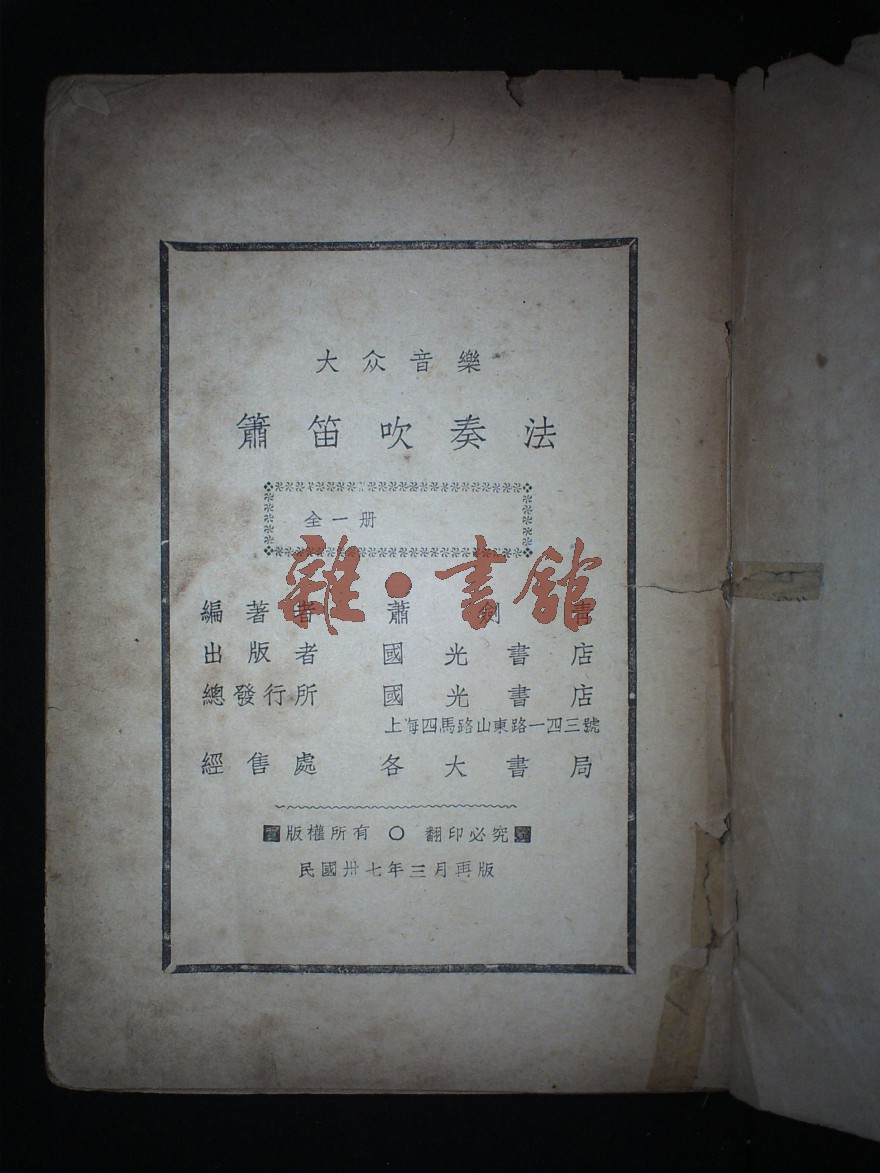 大众音樂
簫笛吹奏法
全一册
雜·書館
編著者 蕭剑青
出版者 國光書店
總發行所 國光書店
上海四馬路山東路一四三號
經售處 各大書局
版權所有 〇 翻印必究
民國卅七年三月再版